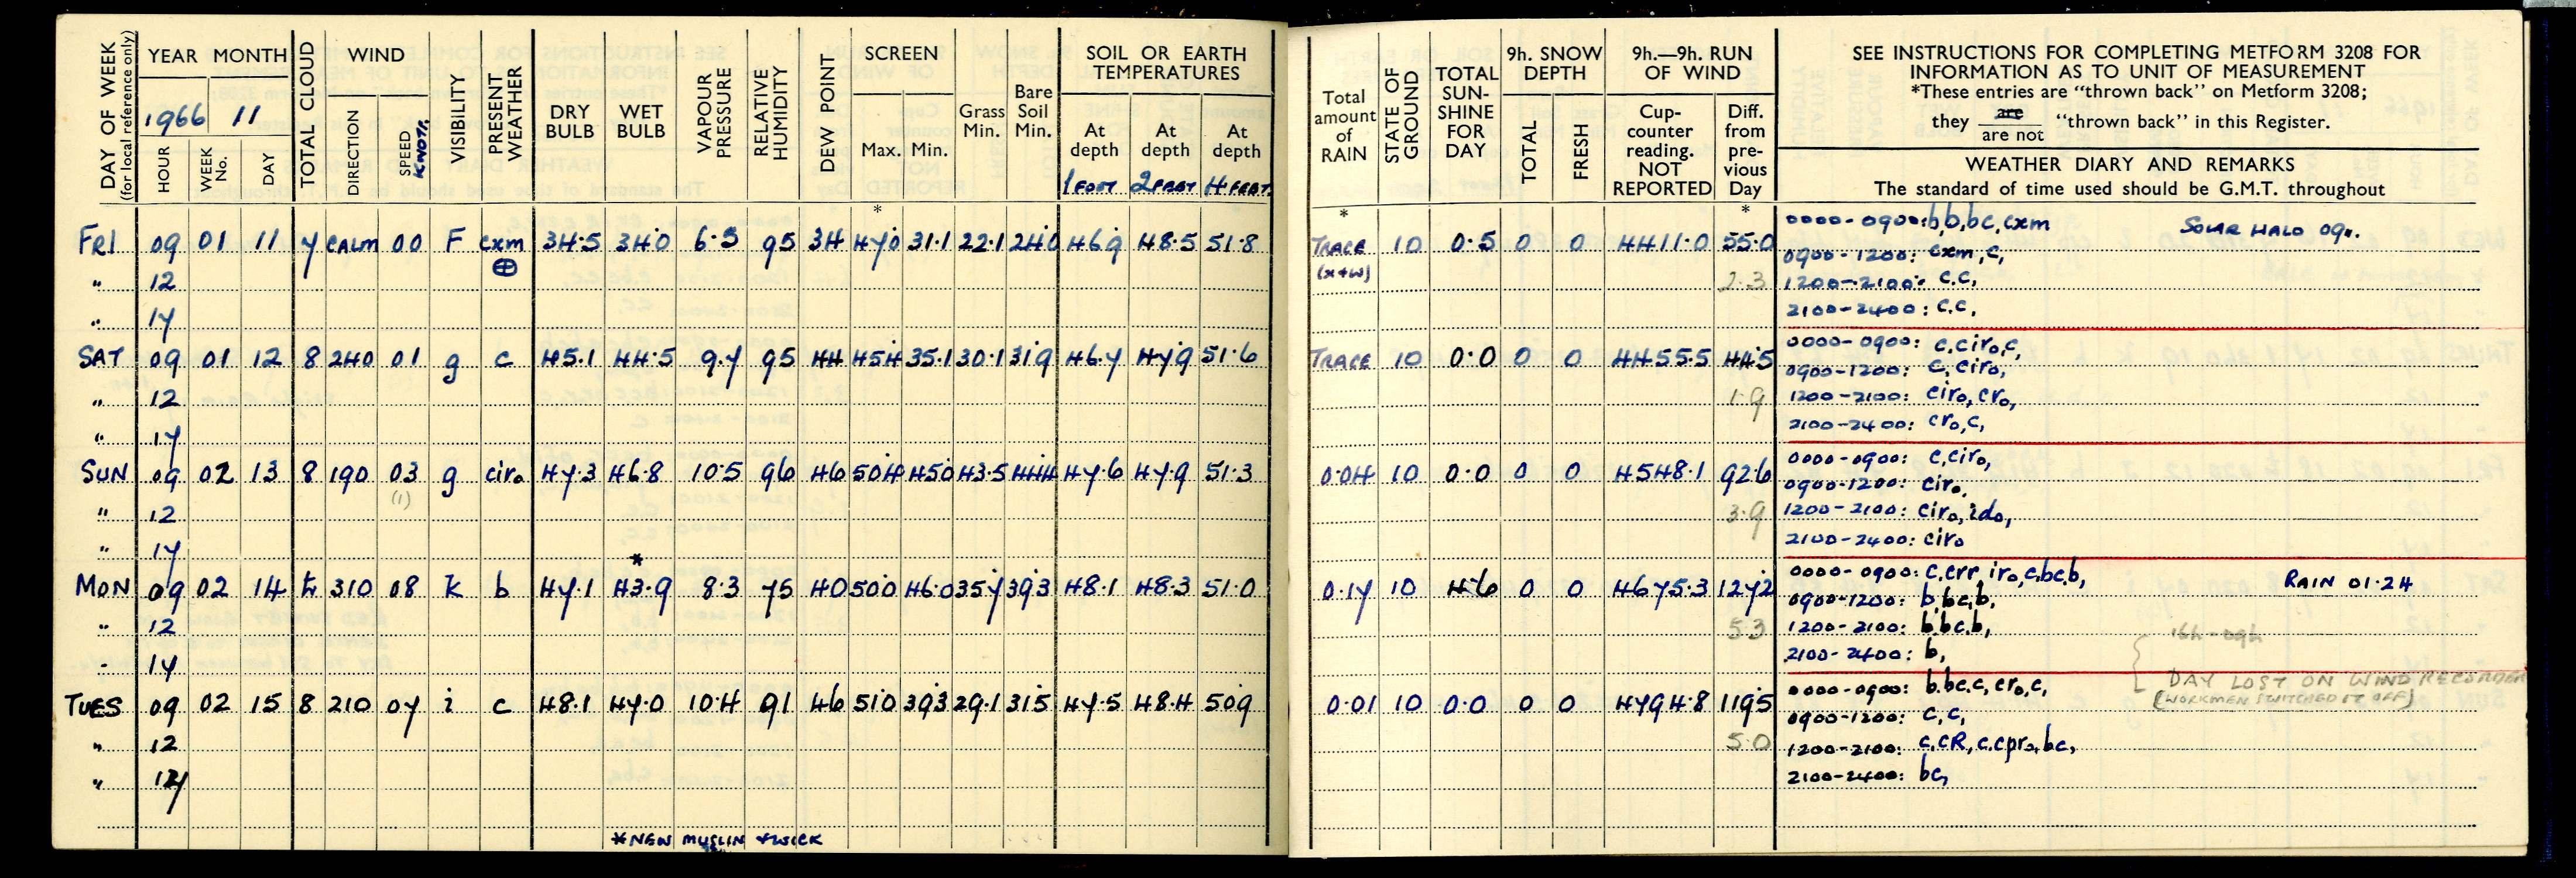 DAY OF WEEK (for local reference only)
YEAR MONTH
1966 11
HOUR
WEEK No.
DAY
TOTAL CLOUD
WIND
DIRECTION
SPEED KNOTS
VISIBILITY
PRESENT WEATHER
DRY BULB
WET BULB
VAPOUR PRESSURE
RELATIVE HUMIDITY
DEW POINT
SCREEN
Max. Min.
Grass Min.
Bare Soil Min.
SOIL OR EARTH TEMPERATURES
At depth 1 FOOT
At depth 2 FEET
At depth 4 FEET
Total amount of RAIN
STATE OF GROUND
TOTAL SUN-SHINE FOR DAY
9h. SNOW DEPTH
TOTAL
FRESH
9h.—9h. RUN OF WIND
Cup-counter reading. NOT REPORTED
Diff. from pre-vious Day
SEE INSTRUCTIONS FOR COMPLETING METFORM 3208 FOR
INFORMATION AS TO UNIT OF MEASUREMENT
*These entries are "thrown back" on Metform 3208;
they are / are not "thrown back" in this Register.
WEATHER DIARY AND REMARKS
The standard of time used should be G.M.T. throughout
* * *
FRI 09 01 11 7 CALM 00 F cxm 34.5 34.0 6.5 95 34 47.0 31.1 22.1 24.0 46.9 48.5 51.8 TRACE 10 0.5 0 0 4411.0 55.0
⊕ (x+w)
" 12 2.3
" 17
0000-0900: b,b,bc,cxm SOLAR HALO 09..
0900-1200: cxm,c,
1200-2100: c.c,
2100-2400: c.c,
SAT 09 01 12 8 240 01 g c 45.1 44.5 9.7 95 44 45.4 35.1 30.1 31.9 46.7 47.9 51.6 TRACE 10 0.0 0 0 4455.5 44.5
" 12 1.9
" 17
0000-0900: c,ciro,c,
0900-1200: c,ciro,
1200-2100: ciro,cro,
2100-2400: cro,c,
SUN 09 02 13 8 190 03 g ciro 47.3 46.8 10.5 96 46 50.4 45.0 43.5 44.4 47.6 47.9 51.3 0.04 10 0.0 0 0 4548.1 92.6
(1)
" 12 3.9
" 17
0000-0900: c,ciro,
0900-1200: ciro,
1200-2100: ciro,ido,
2100-2400: ciro
*
MON 09 02 14 310 08 k b 47.1 43.9 8.3 75 40 50.0 46.0 35.7 39.3 48.1 48.3 51.0 0.17 10 4.6 0 0 4675.3 127.2
" 12 5.3
17
0000-0900: c,crr,iro,c,bc,b, RAIN 01.24
0900-1200: b,bc,b,
1200-2100: b.bc.b,
2100-2400: b,
16h-09h
DAY LOST ON WIND RECORDER
(WORKMEN SWITCHED IT OFF)
TUES 09 02 15 8 210 07 i c 48.1 47.0 10.4 91 46 51.0 39.3 29.1 31.5 47.5 48.4 50.9 0.01 10 0.0 0 0 4794.8 119.5
" 12 5.0
" 17
0000-0900: b.bc.c,cro,c,
0900-1200: c,c,
1200-2100: c,cR,c.cpro,bc,
2100-2400: bc,
*NEW MUSLIN + WICK